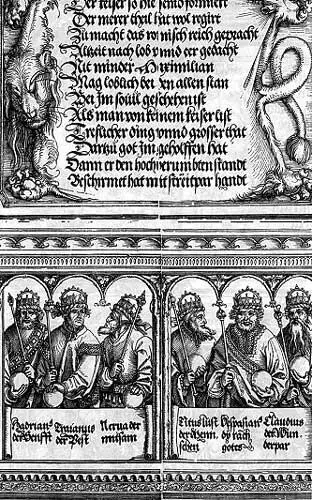 Der keyser so die seind formiert
Der merer theil hat wol regirt
Zu macht das römisch reich gepracht
Altzeit nach lob vnnd eer gedacht
Nit minder Maximilian
Mag loblich bei den allen stan
Bei Im souil geschehen ist
Als man von keinem keiser list
Treflicher ding vnnd grosser that
Dartzu got Im geholffen hat
Dann er den hochberumbten standt
Beschirmet hat mit streitpar handt
Hadrianus
der Senfft
Traianus
der Best
Nerua der
mitsam
Titus last
der Menn
schen
Vespasianus
dy rach
gotes
Claudius
der Wun
derpar